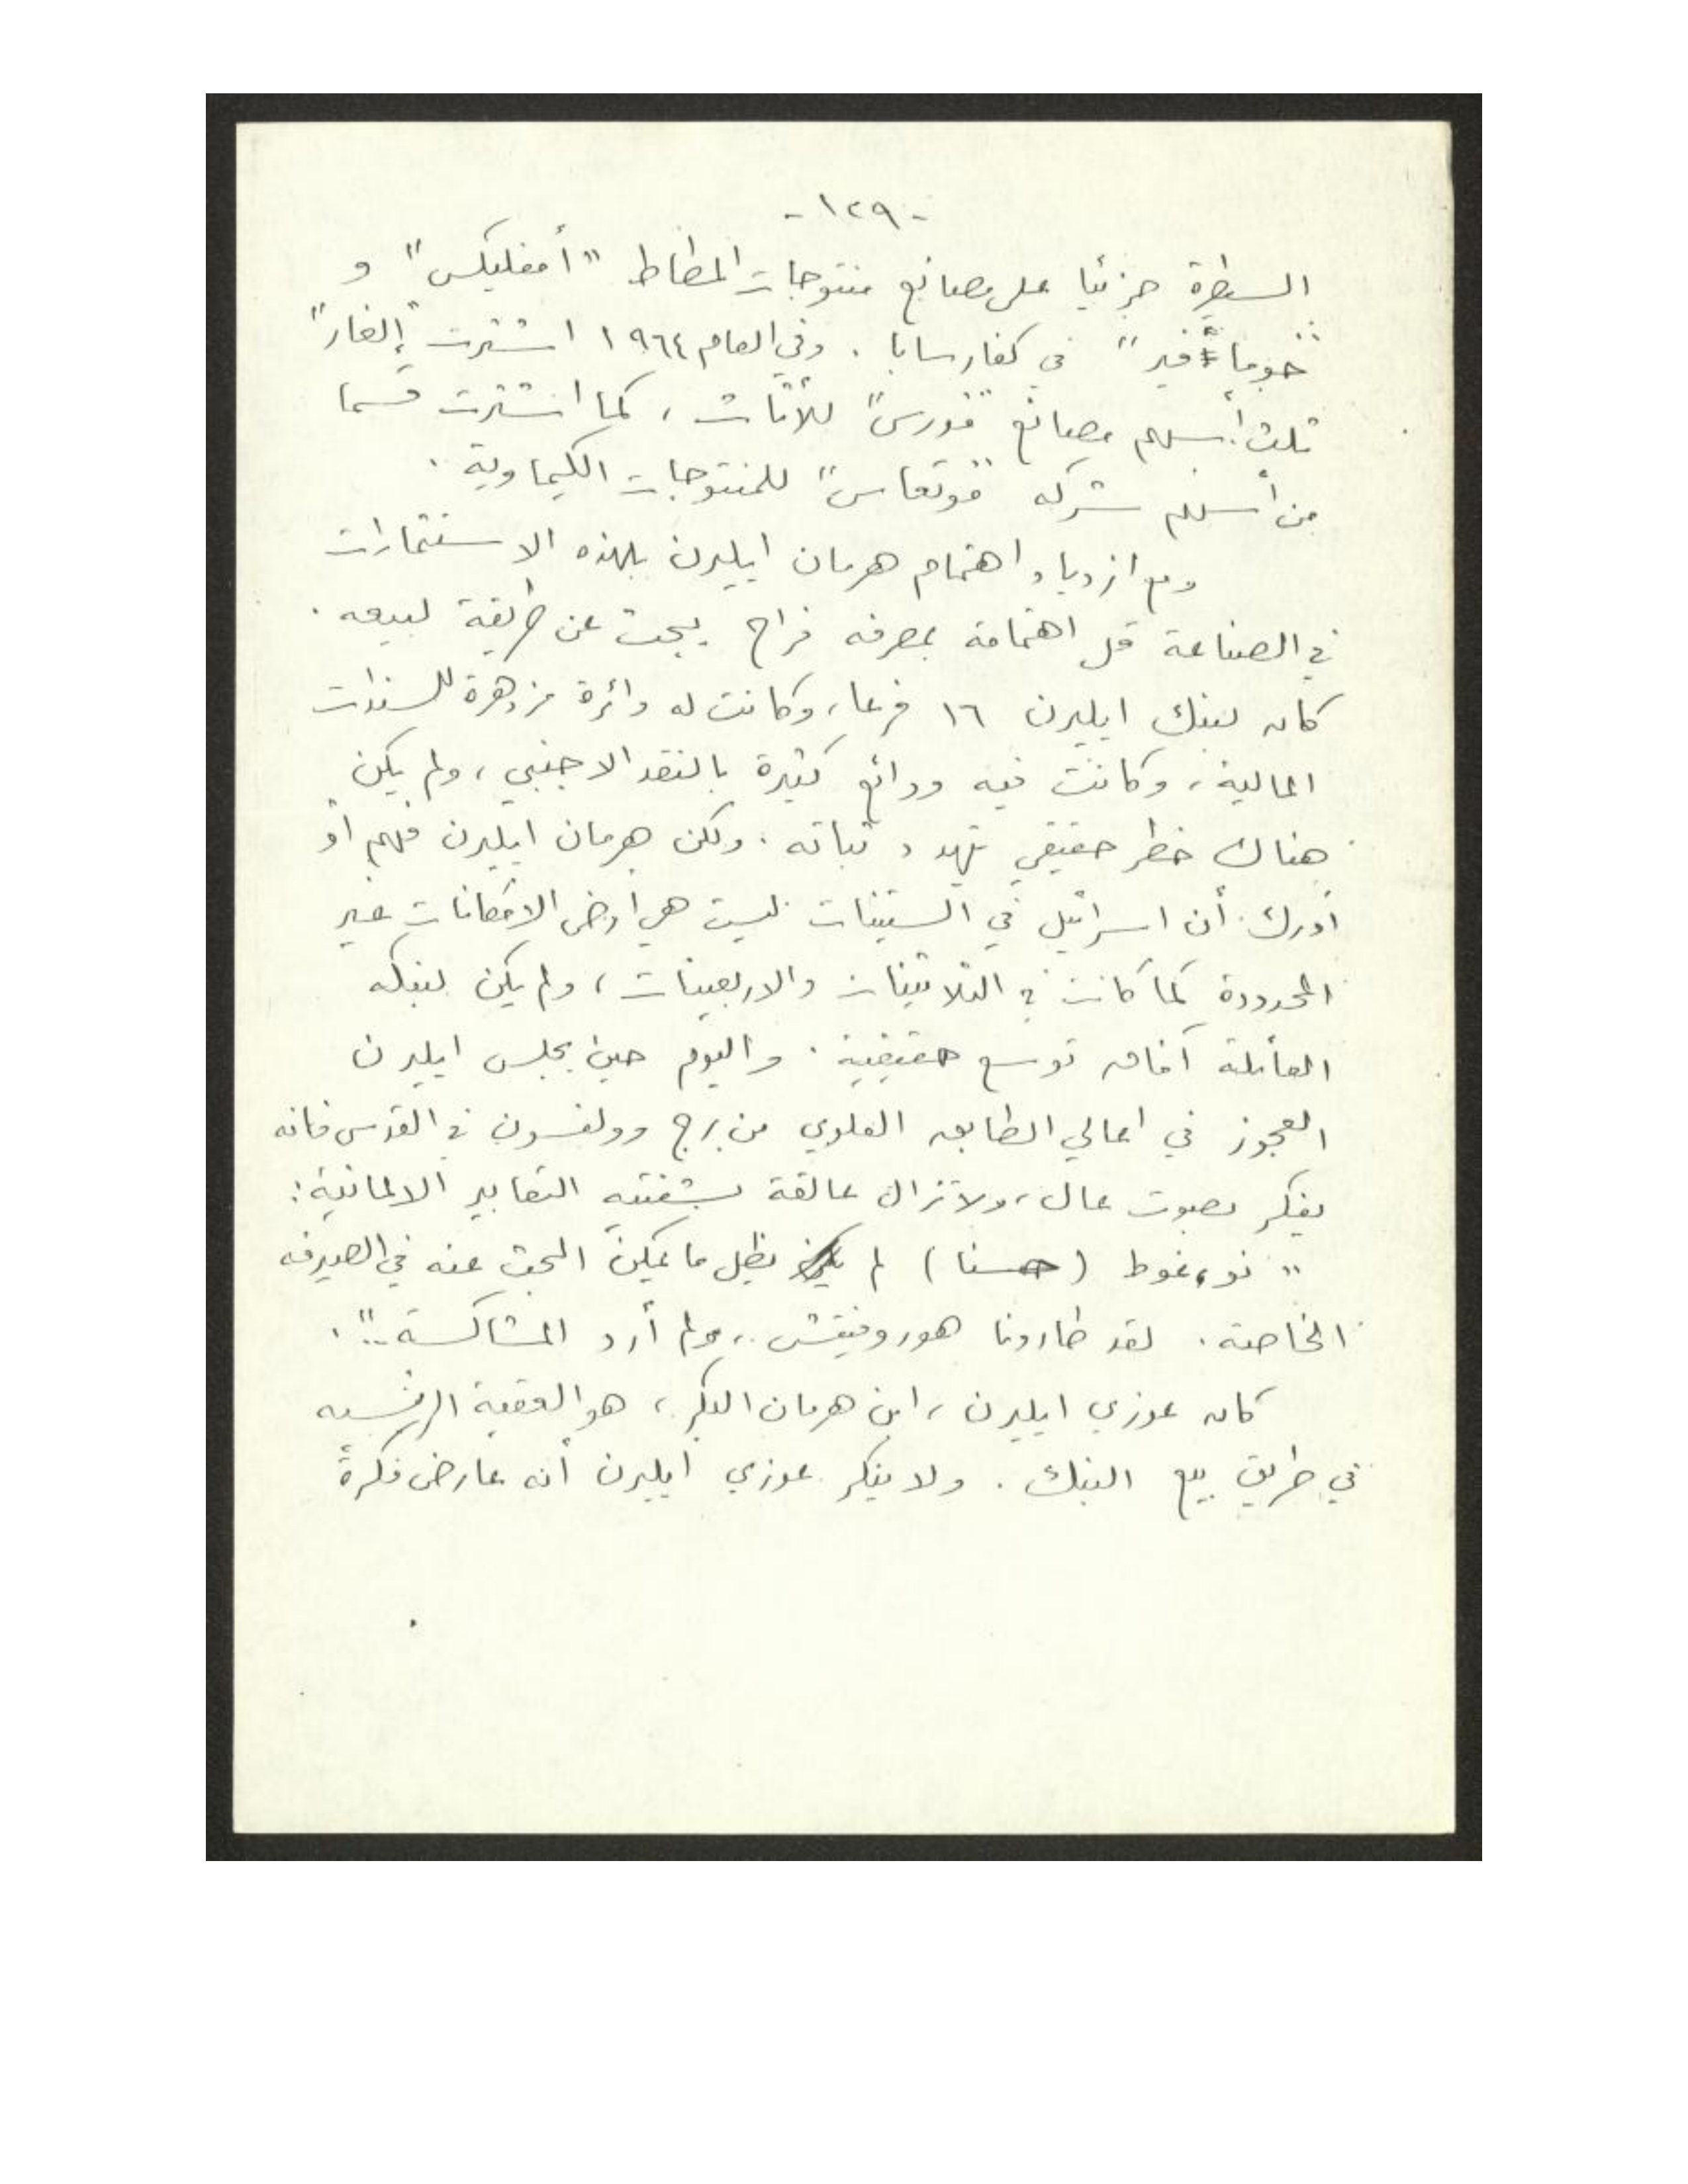 - ١٢٩ -
السيطرة جزئيا على مصانع منتوجات المطاط "أمفليكس" و
في كفار سابا . وفي العام ١٩٦٤ اشترت "إلغار"
ثلث أسهم مصانع "فورس" للأثاث ، كما اشترت قسما
من أسهم شركه "فوتغاس" للمنتوجات الكيماوية .
ومع ازدياد اهتمام هرمان ايليرن بهذه الاستثمارات
في الصناعة قل اهتمامه بمصرفه فراح يبحث عن طريقة لبيعه .
كان لبنك ايليرن ١٦ فرعا ، وكانت له دائرة مزدهرة للسندات
المالية ، وكانت فيه ودائع كثيرة بالنقد الاجنبي ، ولم يكن
هناك خطر حقيقي يهدد ثباته . ولكن هرمان ايليرن فهم أو
أدرك أن اسرائيل في الستينات ليست هي أرض الامكانات غير
المحدودة كما كانت في الثلاثينات والاربعينات ، ولم يكن لبنكه
العائلة آفاق توسع حقيقية . واليوم حين يجلس ايليرن
العجوز في اعالي الطابق العلوي من برج وولفسون في القدس فانه
يفكر بصوت عال ، ولا تزال عالقة بشفتيه التعابير الالمانية :
" نو ، غوط ( حسنا ) لم يظل ما يمكن البحث عنه في الصيرفه
الخاصة . لقد طاردنا هوروفيتش .. ولم أرد المشاكسة .." .
كان عوزي ايليرن ، ابن هرمان البكر ، هو العقبة الرئيسيه
في طريق بيع البنك . ولا ينكر عوزي ايليرن أنه عارض فكرة